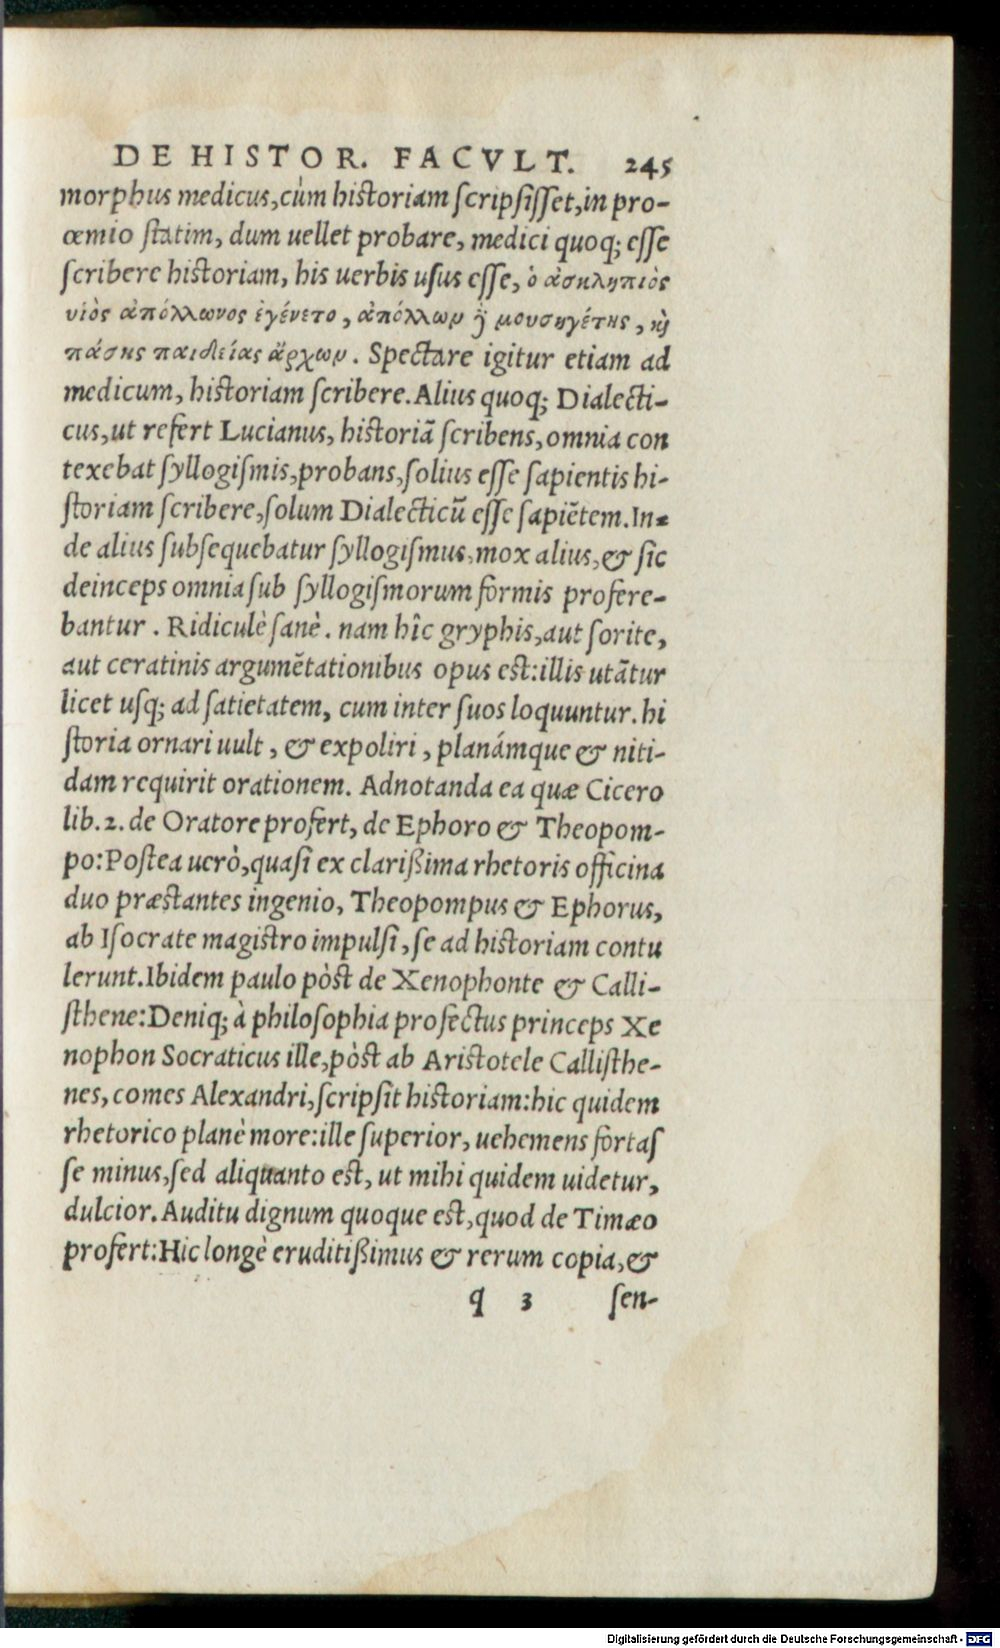 DE HISTOR. FACVLT. 245
morphus medicus, cùm historiam ſcripſiſſet, in pro-
œmio ſtatim, dum uellet probare, medici quoq; eſſe
ſcribere historiam, his uerbis uſus eſſe, ὁ ἀσκληπιὸς
υἱὸς ἀπόλλωνος ἐγένετο, ἀπόλλων ȣ̃ μουσηγέτης, καὶ
πάσης παιδείας ἄρχων. Spectare igitur etiam ad
medicum, historiam ſcribere. Alius quoq; Dialecti-
cus, ut refert Lucianus, historiã ſcribens, omnia con
texebat ſyllogiſmis, probans, ſolius eſſe ſapientis hi-
ſtoriam ſcribere, ſolum Dialecticũ eſſe ſapiẽtem. In-
de alius ſubſequebatur ſyllogiſmus, mox alius, & ſic
deinceps omnia ſub ſyllogiſmorum formis profere-
bantur. Ridiculè ſanè. nam hîc gryphis, aut ſorite,
aut ceratinis argumẽtationibus opus est: illis utãtur
licet uſq; ad ſatietatem, cum inter ſuos loquuntur. hi
ſtoria ornari uult, & expoliri, planámque & niti-
dam requirit orationem. Adnotanda ea quæ Cicero
lib. 2. de Oratore profert, de Ephoro & Theopom-
po: Poſtea uerò, quaſi ex clarißima rhetoris officina
duo præstantes ingenio, Theopompus & Ephorus,
ab Iſocrate magistro impulſi, ſe ad historiam contu
lerunt. Ibidem paulo pòst de Xenophonte & Calli-
ſthene: Deniq; à philoſophia profectus princeps Xe
nophon Socraticus ille, pòst ab Aristotele Calliſthe-
nes, comes Alexandri, ſcripſit historiam: hic quidem
rhetorico planè more: ille ſuperior, uehemens fortaſ
ſe minus, ſed aliquanto est, ut mihi quidem uidetur,
dulcior. Auditu dignum quoque est, quod de Timæo
profert: Hic longè eruditißimus & rerum copia, &
q 3 ſen-
Digitalisierung gefördert durch die Deutsche Forschungsgemeinschaft - DFG